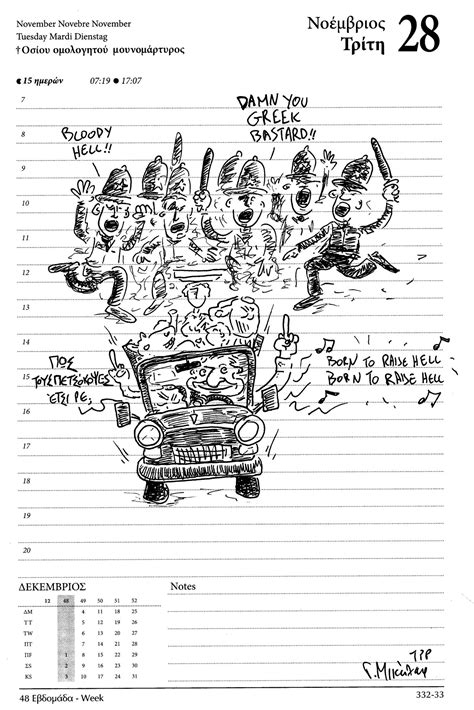 November Novebre November
Tuesday Mardi Dienstag
† Οσίου ομολογητού μουνομάρτυρος
Νοέμβριος
Τρίτη
28
15 ημερών 07:19 ● 17:07
7
8
9
10
11
12
13
14
15
16
17
18
19
20
BLOODY
HELL!!
DAMN YOU
GREEK
BASTARD!!
ΠΩΣ
ΤΟΥΣ ΠΕΤΣΟΚΟΨΕΣ
ΕΤΣΙ ΡΕ;
BORN TO RAISE HELL
BORN TO RAISE HELL
ΔΕΚΕΜΒΡΙΟΣ
12 48 49 50 51 52
ΔΜ 4 11 18 25
ΤΤ 5 12 19 26
TW 6 13 20 27
ΠΤ 7 14 21 28
ΠΒ 1 8 15 22 29
ΣS 2 9 16 23 30
ΚS 3 10 17 24 31
Notes
48 Εβδομάδα - Week
332-33